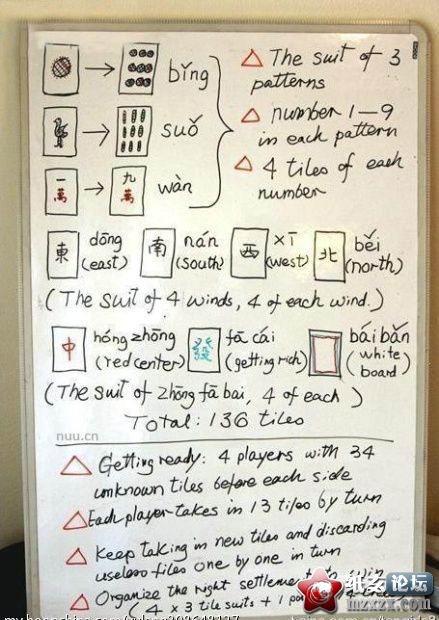 bǐng
△ The suit of 3
patterns
suǒ
△ number 1—9
in each pattern
一萬 九萬 wàn
△ 4 tiles of each
number
東 dōng (east) 南 nán (south) 西 xī (west) 北 běi (north)
(The suit of 4 winds, 4 of each wind.)
中 hóng zhōng (red center) 發 fā cái (getting rich) bái bǎn (white board)
(The suit of zhōng fā bai, 4 of each)
Total: 136 tiles
nuu.cn
△ Getting ready: 4 players with 34
unknown tiles before each side
△ Each player takes in 13 tiles by turn
△ Keep taking in new tiles and discarding
useless tiles one by one in turn
△ Organize the right settlement to win
(4 x 3 tile suits + 1
纸友论坛
mzxzx.com